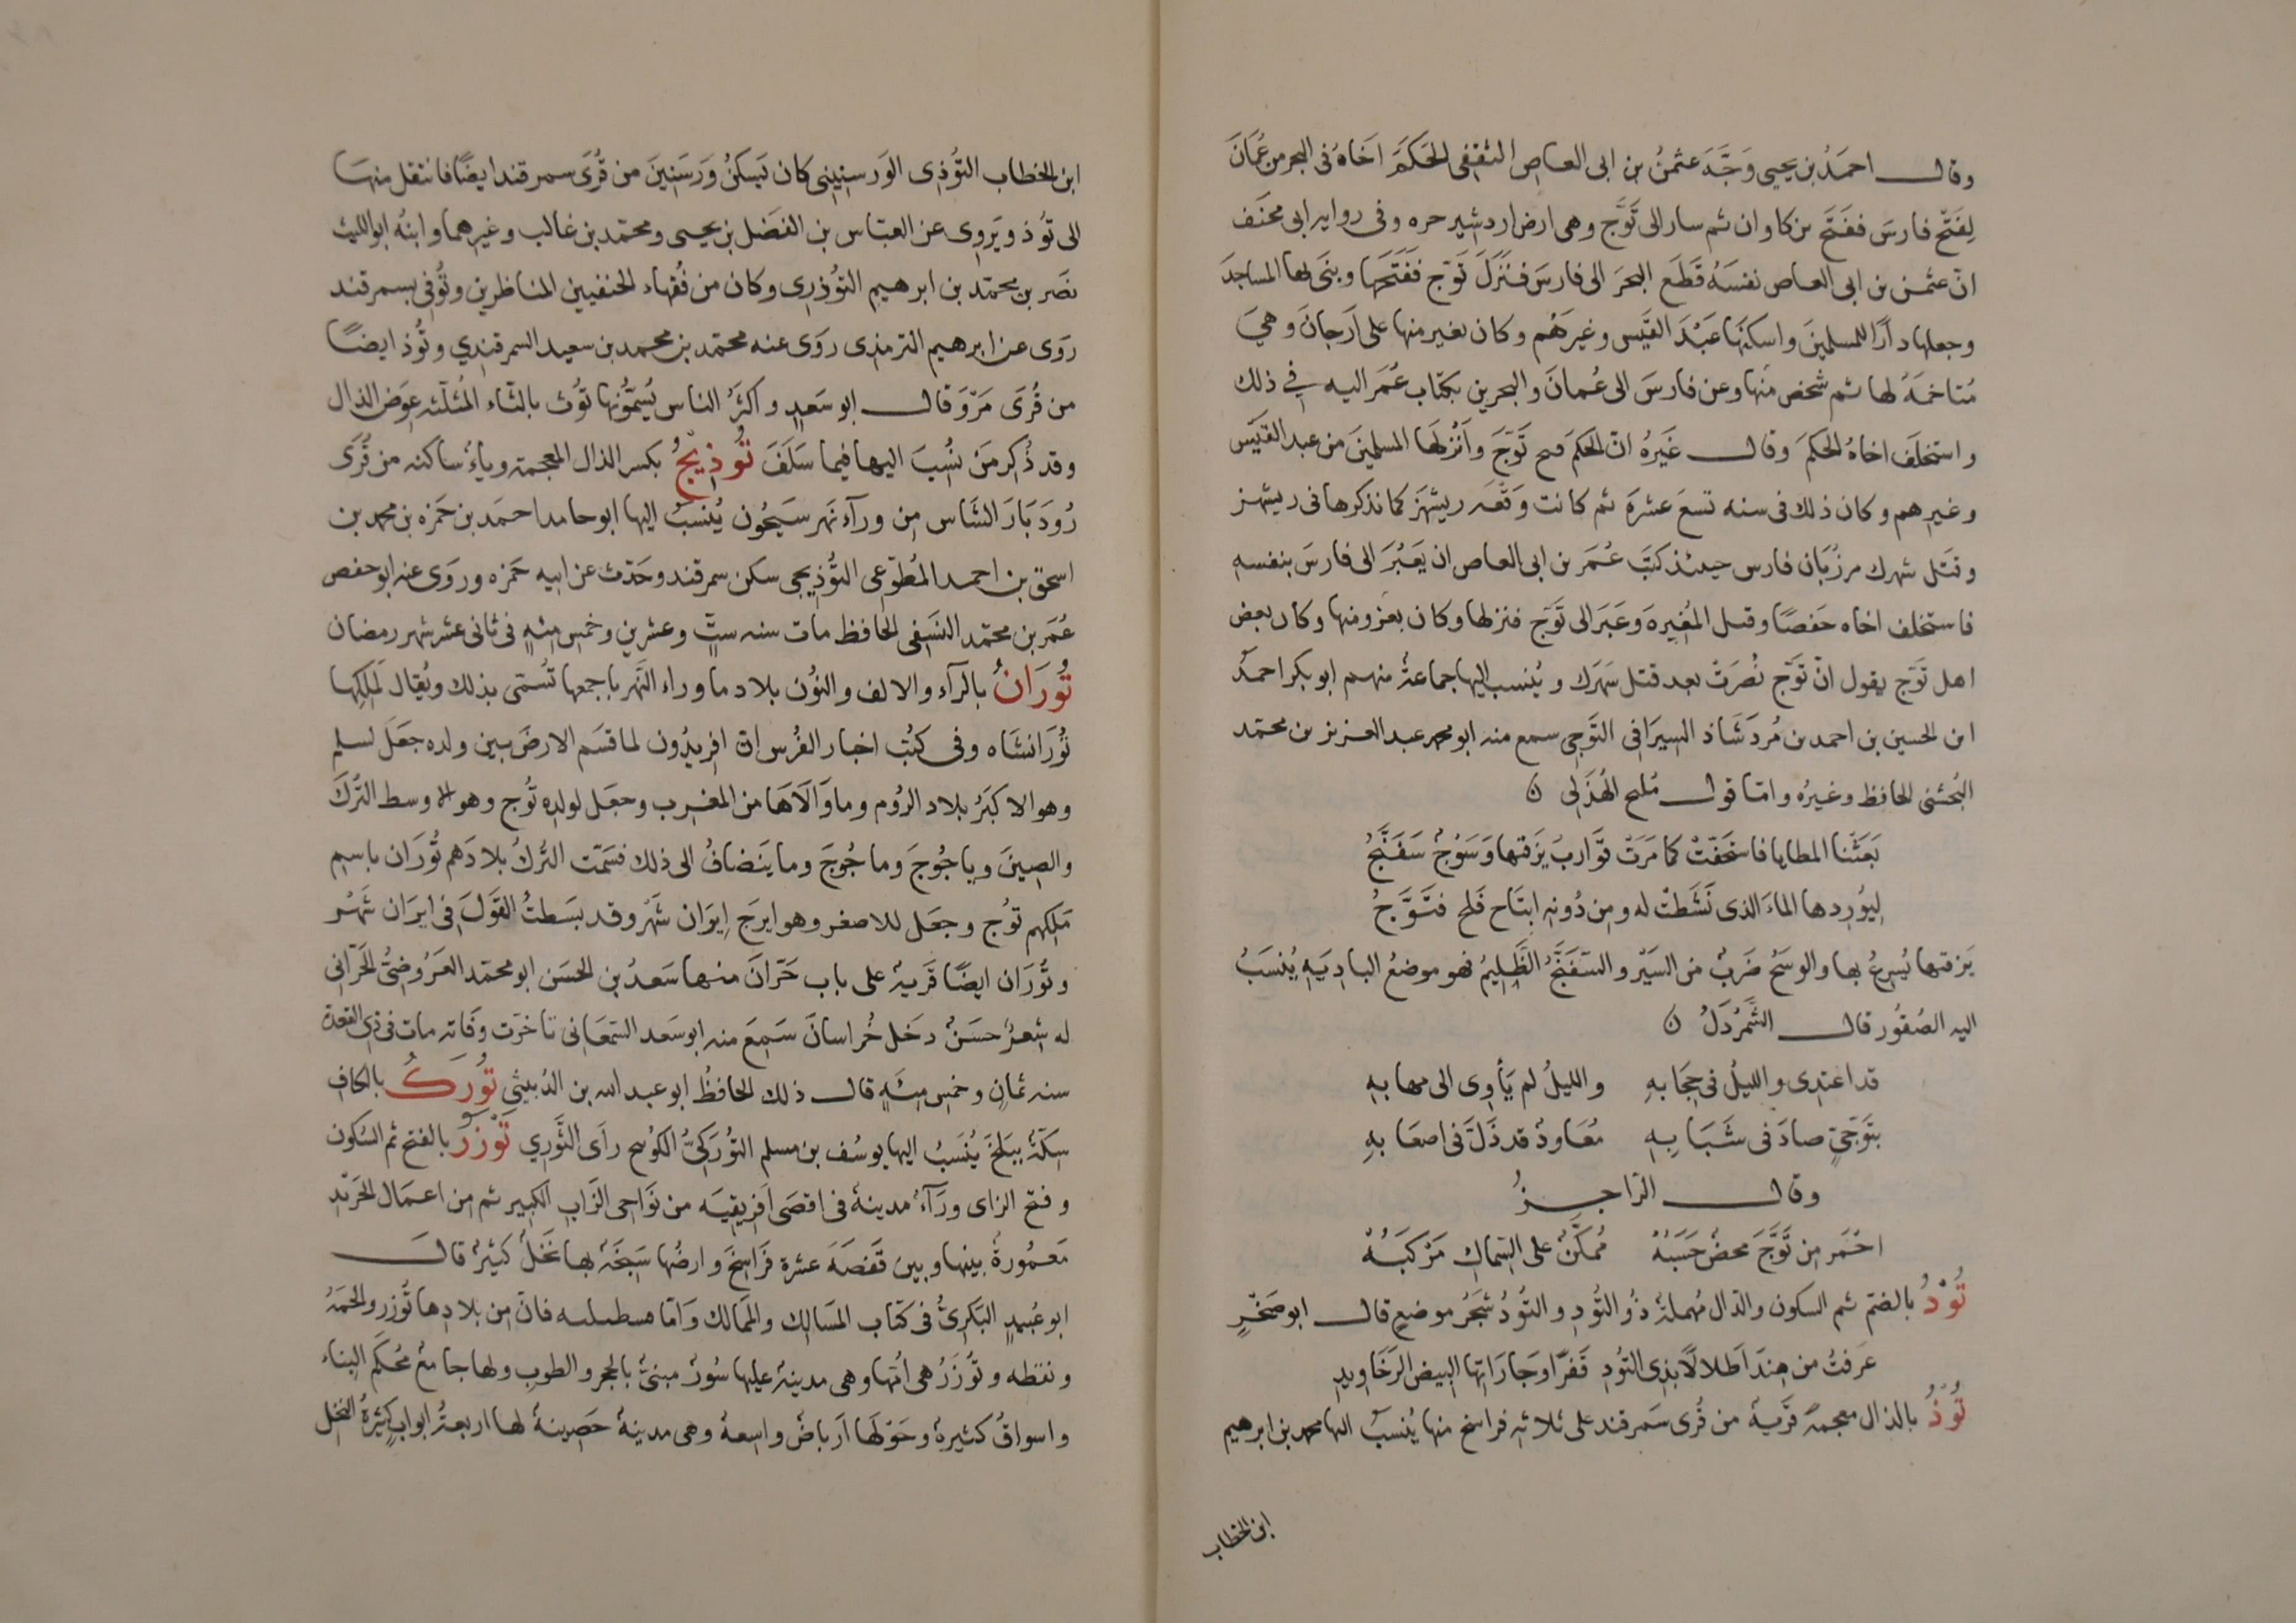 وقال احمَدُ بن يحيى وَجَّهَ عثمنُ بن ابى العاص الثقفى الحَكَمَ اخَاهُ فى البحر من عُمَانَ
لِفَتْح فارسَ ففَتَحَ بن كاوان ثم سار الى تَوَّج وهى ارض اردشير حره وفى روايه ابى مخنَف
انّ عثمن بن ابى العاص نفسَهُ قَطَع البحرَ الى فارسَ فنَزَلَ تَوّج ففَتَحَهَا وبنَى بها المساجدَ
وجعلها دارًا للمسلمينَ واسكنَها عَبْدَ القَيْس وغيرَهُم وكان يغير منها على اَرّجانَ وهىَ
مُتاخمَةٌ لها ثم شخص منها وعن فارسَ الى عُمانَ والبحرين بكتاب عُمَر اليه فى ذلك
واستخلَف اخاهُ الحكمَ وقال غَيرُهُ انّ الحكمَ فتح تَوّجَ وَاَنْزلَها المسلمينَ من عبد القَيْس
وغيرهم وكان ذلك فى سنه تسعَ عشرَةَ ثم كانت وَقعَه ريشهَر كما نذكرها فى ريشهر
وقتَل شهرك مرزُبَان فارس حينئذ كتَبَ عُمَر بن ابى العاص ان يَعبُرَ الى فارسَ بنفسهِ
فاستخلف اخاه حَفصًا وقيل المُغِيرَةَ وَعَبَر الى تَوّج فنزلها وكان يغزو منها وكان بعض
اهل تَوّج يقول انّ تَوّج مُصّرَتْ بعد قتل شَهرَك ويُنسب اليها جماعةٌ منهم ابو بكر احمدُ
ابن الحسين بن احمد بن مُردَشَاذ السِيرَافى التَوَّجى سمع منه ابو محمد عبد العزيز بن محمّد
النخشبى الحافظ وغيرُه وامّا قول مُليح الهُذَلى
بَعَثنَا المطايا فاستخفَّتْ كما مَرَتْ قوَارِبُ يَزفيها وَسَوْجٌ سَفَنَّجُ
لِيُورِدها الماءَ الذى نَشَطَتْ له ومن دُونِهِ اثبَاج فَلج فتَوَّجُ
يَزفيها يُسِرعُ بها والوسْجُ ضَربٌ من السَيْر والسَفَنَّجُ الظَلِيمُ فهو موضعُ البادِيَهِ يُنسَبُ
اليه الصُقُور قال الشَمَرْدَلُ
قد اغتدى والليلُ فى حِجَابهِ والليلُ لم يَأوِى الى مهابهِ
بتَوَّجِىٍّ صادَ فى شَبَابِهِ مُعَاوِدٌ قد ذَلّ فى اصعَابهِ
وقال الرّاجِزُ
احمَر من تَوَّجَ محضٌ حَسَبُهْ مُمكّنٌ على الشِمالِ مَرْكَبُهْ
تُوْدُ بالضمّ ثم السكون والدّال مُهملةٌ ذُو التُودِ والتُّودُ شَجَرٌ موضعٍ قال ابو صَخْرٍ
عَرفتُ من هِندَ اَطلالًا بذى التُودِ قَفْرًا وَجَارَاتِها البيضِ الرَخَاوِيدِ
تُوْذُ بالذال معجمةٌ قَريةٌ من قُرى سَمرقند على ثلاثهِ فراسخ منها يُنسبُ اليها محمد بن ابرهيم
ابن الخطاب
ابن الخطاب التُوْذِى الوَرسنِينى كان يَسكنُ وَرَسْنِينَ من قُرَى سمرقند ايضًا فانتقل منها
الى تُوْذ ويَروى عن العبّاس بن الفضل بن يحيى ومحمّد بن غالب وغيرهما وابنُه ابو الليث
نصَر بن محمّد بن ابرهيم التُوْذى وكان من فُقَهاء الحنفيين المناظرين وتُوُفّى بسمرقند
روَى عن ابرهيم الترمذى روَى عنه محمّد بن محمد بن سعيد السمرقندي وتُوْذ ايضًا
من قُرَى مَرْوَ قال ابو سَعدٍ واكثرُ الناس يُسَمّونها تُوْث بالثاء المُثلّثه عِوَض الذال
وقد ذُكِر مَن نُسِبَ اليها فيما سَلَفَ تُوْذِيْجُ بكسر الذال المعجمة وياءٌ ساكنه من قُرَى
رُوذبَار الشاس من ورآء نَهر سَيحُون يُنسَبُ اليها ابو حامد احمَد بن حَمزه بن محمد بن
اسحق بن احمد المُطوّعى التُوْذِيجى سكن سمرقند وحَدّث عن ابيه حَمزه وروَى عنه ابو حفص
عُمَر بن محمّد النَسَفى الحافظ مات سنه ستٍّ وعشرين وخمس مئهٍ فى ثانى عشر شهر رمضان
تُوْرَانُ بالرآء والالف والنُون بلاد ما وراء النَهر باجمعها تُسمّى بذلك ويُقال لمَلِكِها
تُوْرَانشَاه وفى كتُب اخبار الفُرس انّ افرِيدُون لما قسَم الارضَ بين ولده جَعَلَ لسلم
وهو الاكبَرُ بلاد الرُوم وما وَالَاهَا من المغرب وجعَل لولدِه تُوج وهو الاوسط التُرْكَ
والصِينَ وياجُوجَ وماجُوجَ وما يَنضافُ الى ذلك فسَمّت التُركُ بلادَهم تُوْرَان باسم
مَلِكهم تُوْج وجعَل للاصغر وهو ايرَج اِيرَان شَهْر وقد بسَطتُ القَولَ فى ايرَان شَهْر
وتُوْرَان ايضًا قَرْيةٌ على باب حَرّانَ منها سَعدُ بن الحسَن ابو محمّد العَرُوضِىُّ الحَرّانى
له شِعرٌ حسَنٌ دخَل خُراسانَ سَمِعَ منه ابو سَعد السَّمعَانى تاخرَت وفَاته مات فى ذى القعدة
سنه ثمانٍ وخمس مئهٍ قال ذلك الحافظُ ابو عبد الله بن الدُبيثى تُوْرَكُ بالكاف
سِكّةٌ ببَلْخَ يُنْسَبُ اليها يوسُف بن مسلم التُوْرَكىُّ الكوْسج راَى الثَّوْرِي تَوْزَرُ بالفتح ثم السكون
وفتح الزاى ورَآءٌ مدينةٌ فى اقصَى اَفرِيقِيَه من نَوَاحِى الزابِ الكبير ثم من اعمال الجَرِيْدِ
مَعمُورةٌ بينها وبين نَقْصَهَ عشرة فَرَاسخَ وارضُها سَبخَةٌ بها نَخلٌ كثيرٌ قال
ابو عُبيدٍ البَكرىُّ فى كتاب المسَالِك والممَالك وَامّا قسطيليه فانّ من بلادها تُوزر والحمّةُ
ونفطه وتُوزَرُ هى اُمّها وهى مدينةٌ عليها سُورٌ مبنىٌّ بالحجر والطوب ولها جامعٌ مُحكَم البِناء
واسواقٌ كثيرةٌ وحَوْلَها اَرباضٌ واسعةٌ وهى مدينةٌ حَصِينةٌ لها اربعةُ ابوابٍ كثيرةُ النخل